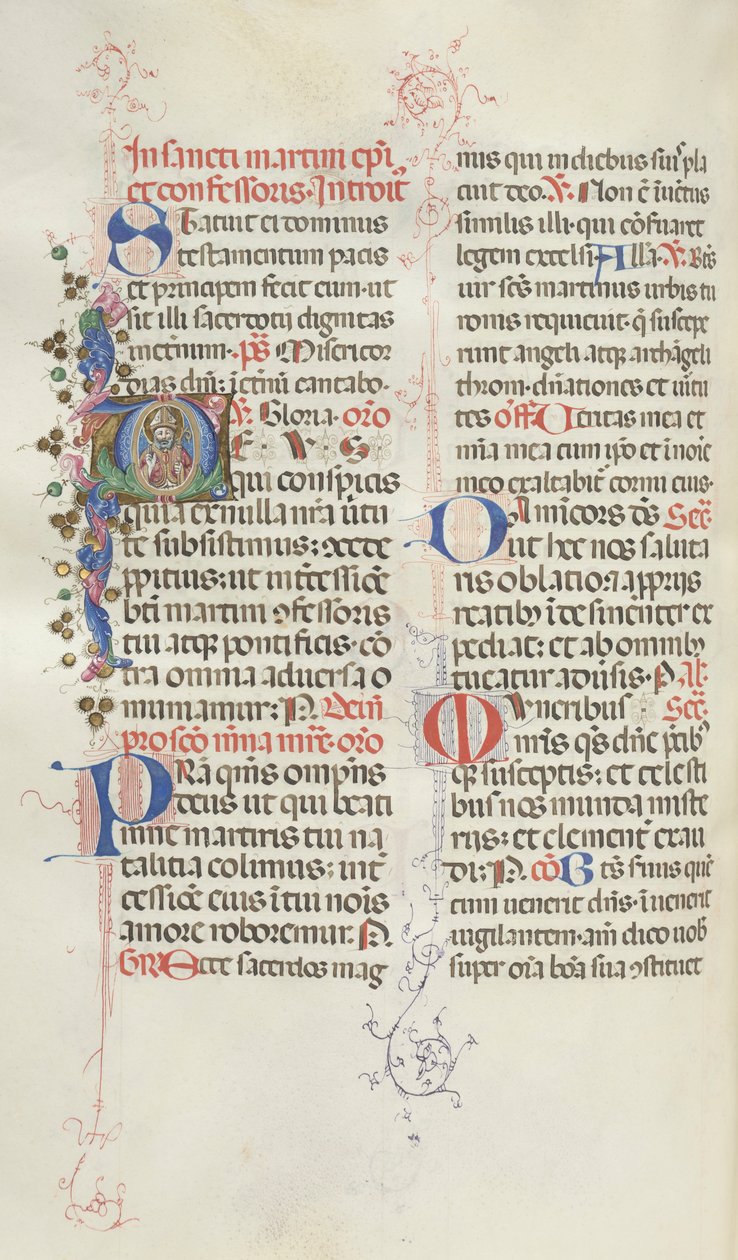 In sancti martini epi
et confessoris. Introit
Statuit ei dominus
testamentum pacis
et principem fecit eum. ut
sit illi sacerdotij dignitas
ineternum. ps Misericor
dias dni: ieternu cantabo.
V. Gloria. oro
DEVS
qui conspicis
quia ex nulla nra uirtu
te subsistimus: concede
ppitius: ut intercessioe
bti martini 9fessoris
tui atq pontificis. co
tra omnia aduersa o
muniamur: P.
pro sco mina mre. oro
PRA qms omps
deus ut qui beati
mine martiris tui na
talitia colimus: int
cessioe eius i tui nois
amore roboremur. P.
GR Ecce sacerdos mag
nis qui in diebus suis pla
cuit deo. V. Non e iuetus
similis illi. qui coseruaret
legem excelsi. Alla. V. Bts
uir scs martinus urbis tu
ronis requieuit. q suscepe
runt angeli atq archageli
throni. dnationes et uirtu
tes off Ueritas mea et
mia mea cum ipo et i noie
meo exaltabit cornu eius.
DA miicors ds Sec.
ut hec nos saluta
ris oblatio. 7 a pprijs
reatib3 i desinenter ex
pediat: et ab omnib3
tueatur aduersis. P
Muneribus Sec.
nris qs dne pcib9
q3 susceptis: et celesti
bus nos munda miste
rijs: et clementer exau
di: P. co Bts seruus que
cum uenerit dns. iuenerit
uigilantem. am dico uob
super oia bona sua 9stituet